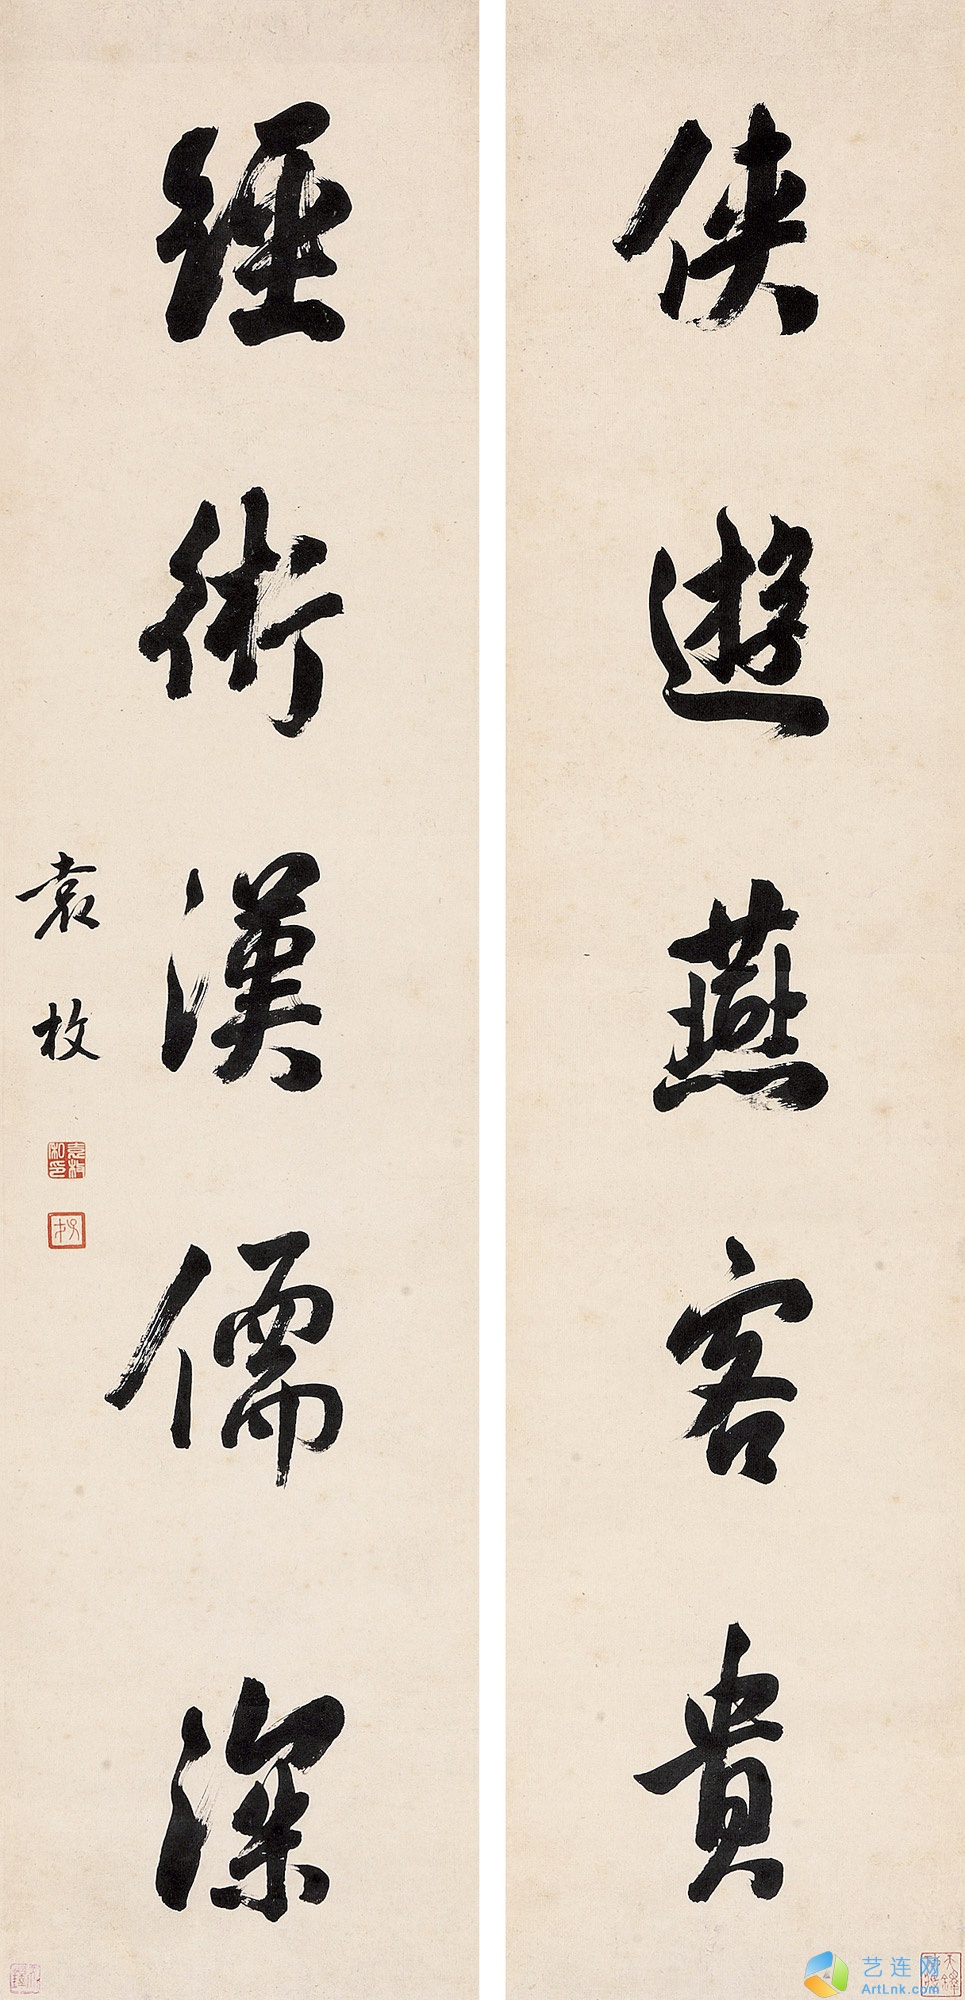 俠遊燕客貴
經術漢儒深
袁枚
袁枚私印
艺连网
ArtLnk.com